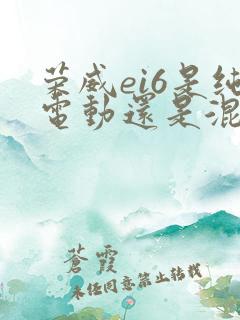 荣威ei6是纯
電動還是混
蒼霞
未经同意禁止转载